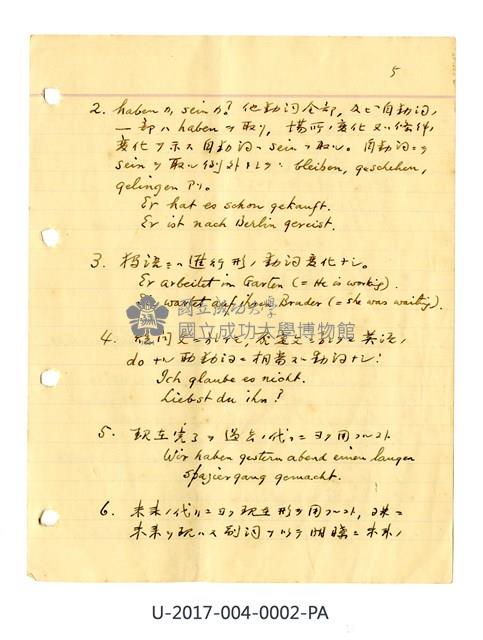 5
2. haben カ, sein カ? 他動詞全部, 及ビ自動詞ノ
一部ハ haben ヲ取リ, 場所ノ変化又ハ條件ノ
変化ヲ示ス自動詞ハ sein ヲ取ル. 自動詞ニテ
sein ヲ取ル例外トシテハ bleiben, geschehen,
gelingen アリ.
Er hat es schon gekauft.
Er ist nach Berlin gereist.
3. 独語ニハ進行形ノ動詞変化ナシ.
Er arbeitet im Garten (= He is working).
wartet auf ihren Bruder (= she was waiting).
國立成功大學
國立成功大學博物館
4. 英語ノ
do ナル助動詞ニ相当スル動詞ナシ:
Ich glaube es nicht.
Liebst du ihn?
5. 現在完了ヲ過去ノ代リニヨク用フルコト.
Wir haben gestern abend einen langen
Spaziergang gemacht.
6. 未来ノ代リニヨク現在形ヲ用フルコト, 殊ニ
未来ヲ現ハス副詞アリテ明瞭ニ未来ノ
U-2017-004-0002-PA